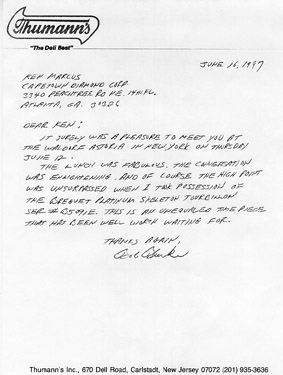 Thumann's
"The Deli Best"
JUNE 16, 1997
KEN MARCUS
CAPETOWN DIAMOND CORP.
3340 PEACHTREE RD N.E.
ATLANTA, GA. 30326
DEAR KEN:
IT SURELY WAS A PLEASURE TO MEET YOU AT
THE WALDORF ASTORIA IN NEW YORK ON THURSDAY
JUNE 12.
THE LUNCH WAS FABULOUS, THE CONVERSATION
WAS ENLIGHTENING. AND OF COURSE THE HIGH POINT
WAS UNSURPRISED WHEN I TOOK POSSESSION OF
THE BREGUET PLATINUM SKELETON TOURBILLON
SER #
THIS IS AN UNEQUALED TIMEPIECE
THAT HAS BEEN WELL WORTH WAITING FOR.
THANKS AGAIN,
Thumann's Inc., 670 Dell Road, Carlstadt, New Jersey 07072 (201) 935-3636